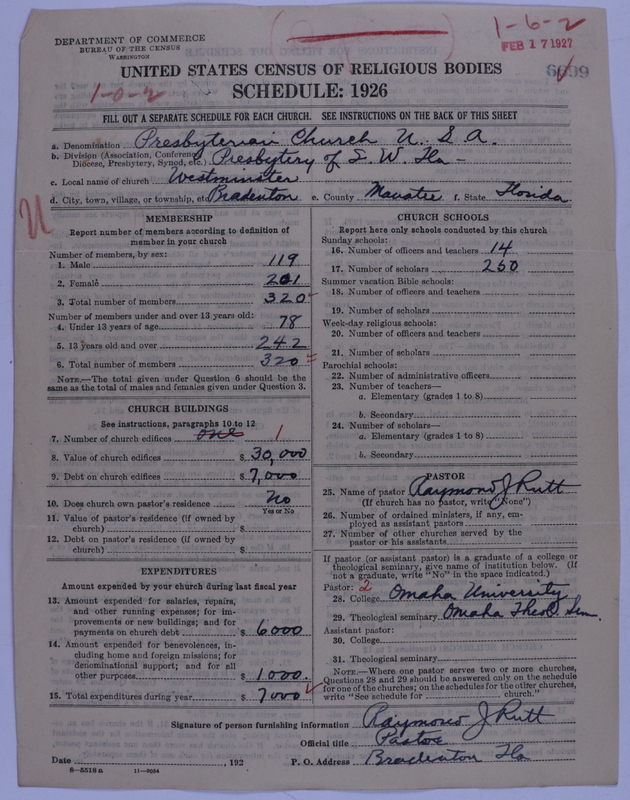 DEPARTMENT OF COMMERCE
BUREAU OF THE CENSUS
WASHINGTON
1-6-2
FEB 17 1927
6099
UNITED STATES CENSUS OF RELIGIOUS BODIES
1-0-2
SCHEDULE: 1926
FILL OUT A SEPARATE SCHEDULE FOR EACH CHURCH. SEE INSTRUCTIONS ON THE BACK OF THIS SHEET
a. Denomination Presbyterian Church U. S. A.
b. Division (Association, Conference, Diocese, Presbytery, Synod, etc.) Presbytery of S. W. Fla-
c. Local name of church Westminster
d. City, town, village, or township, etc. Bradenton e. County Manatee f. State Florida
U
MEMBERSHIP
Report number of members according to definition of
member in your church
Number of members, by sex:
1. Male 119
2. Female 201
3. Total number of members 320
Number of members under and over 13 years old:
4. Under 13 years of age 78
5. 13 years old and over 242
6. Total number of members 320
NOTE.—The total given under Question 6 should be the
same as the total of males and females given under Question 3.
CHURCH BUILDINGS
See instructions, paragraphs 10 to 12
7. Number of church edifices one 1
8. Value of church edifices $30,000
9. Debt on church edifices $7,000
10. Does church own pastor's residence No
Yes or No
11. Value of pastor's residence (if owned by
church) $
12. Debt on pastor's residence (if owned by
church) $
EXPENDITURES
Amount expended by your church during last fiscal year
13. Amount expended for salaries, repairs,
and other running expenses; for im-
provements or new buildings; and for
payments on church debt $6000
14. Amount expended for benevolences, in-
cluding home and foreign missions; for
denominational support; and for all
other purposes $1000.
15. Total expenditures during year $7000
CHURCH SCHOOLS
Report here only schools conducted by this church
Sunday schools:
16. Number of officers and teachers 14
17. Number of scholars 250
Summer vacation Bible schools:
18. Number of officers and teachers
19. Number of scholars
Week-day religious schools:
20. Number of officers and teachers
21. Number of scholars
Parochial schools:
22. Number of administrative officers
23. Number of teachers—
a. Elementary (grades 1 to 8)
b. Secondary
24. Number of scholars—
a. Elementary (grades 1 to 8)
b. Secondary
PASTOR
25. Name of pastor Raymond J Rutt
(If church has no pastor, write "None")
26. Number of ordained ministers, if any, em-
ployed as assistant pastors
27. Number of other churches served by the
pastor or his assistants
If pastor (or assistant pastor) is a graduate of a college or
theological seminary, give name of institution below. (If
not a graduate, write "No" in the space indicated.)
Pastor: 2
28. College Omaha University
29. Theological seminary Omaha Theol. Sem.
Assistant pastor:
30. College
31. Theological seminary
NOTE.—Where one pastor serves two or more churches,
Questions 28 and 29 should be answered only on the schedule
for one of the churches; on the schedules for the other churches,
write "See schedule for church."
Signature of person furnishing information Raymond J Rutt
Official title Pastor
Date , 192 P. O. Address Bradenton Fla
8—5518 a 11—9054